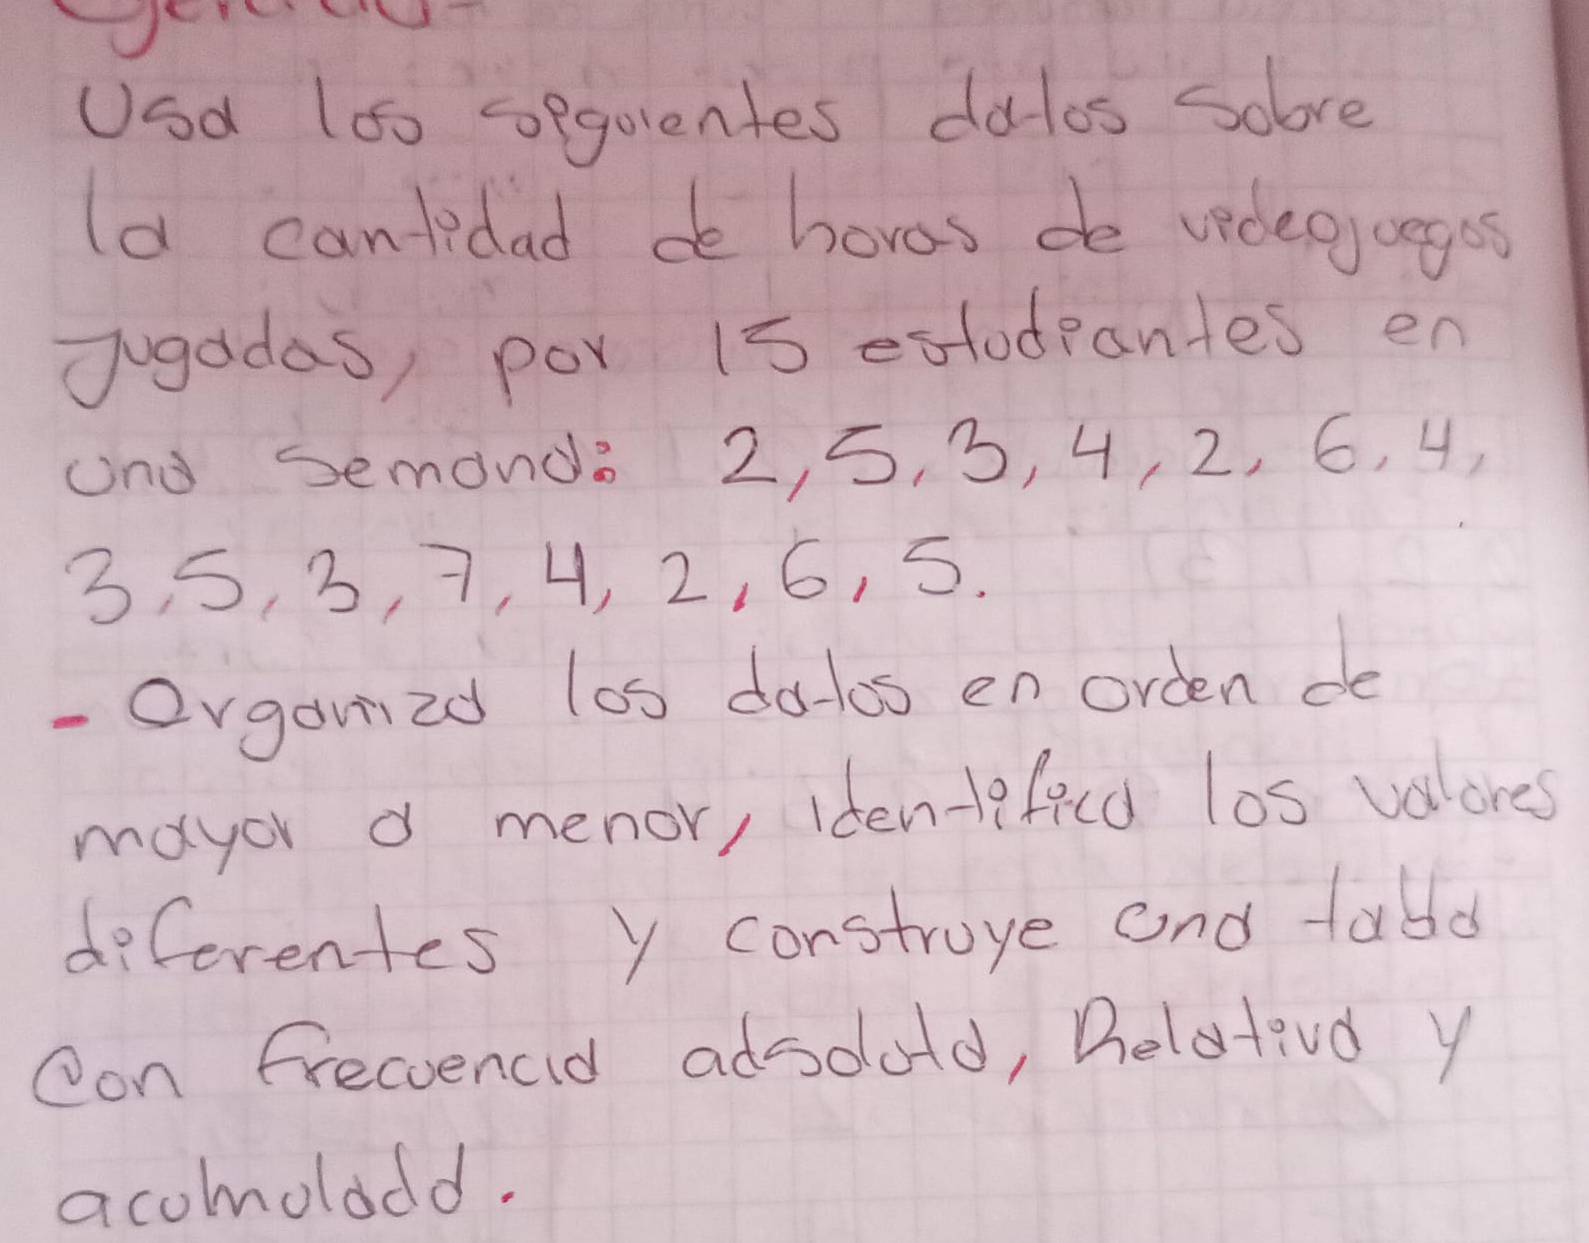 Usa los siguientes datos sobre
la cantidad de horas de videojuegos
jugadas, por 15 estudiantes en
una semana: 2, 5, 3, 4, 2, 6, 4,
3, 5, 3, 7, 4, 2, 6, 5.
- Organiza los datos en orden de
mayor a menor, identifica los valores
diferentes y construye una tabla
con frecuencia adsoluta, Relativa y
acolmulada.